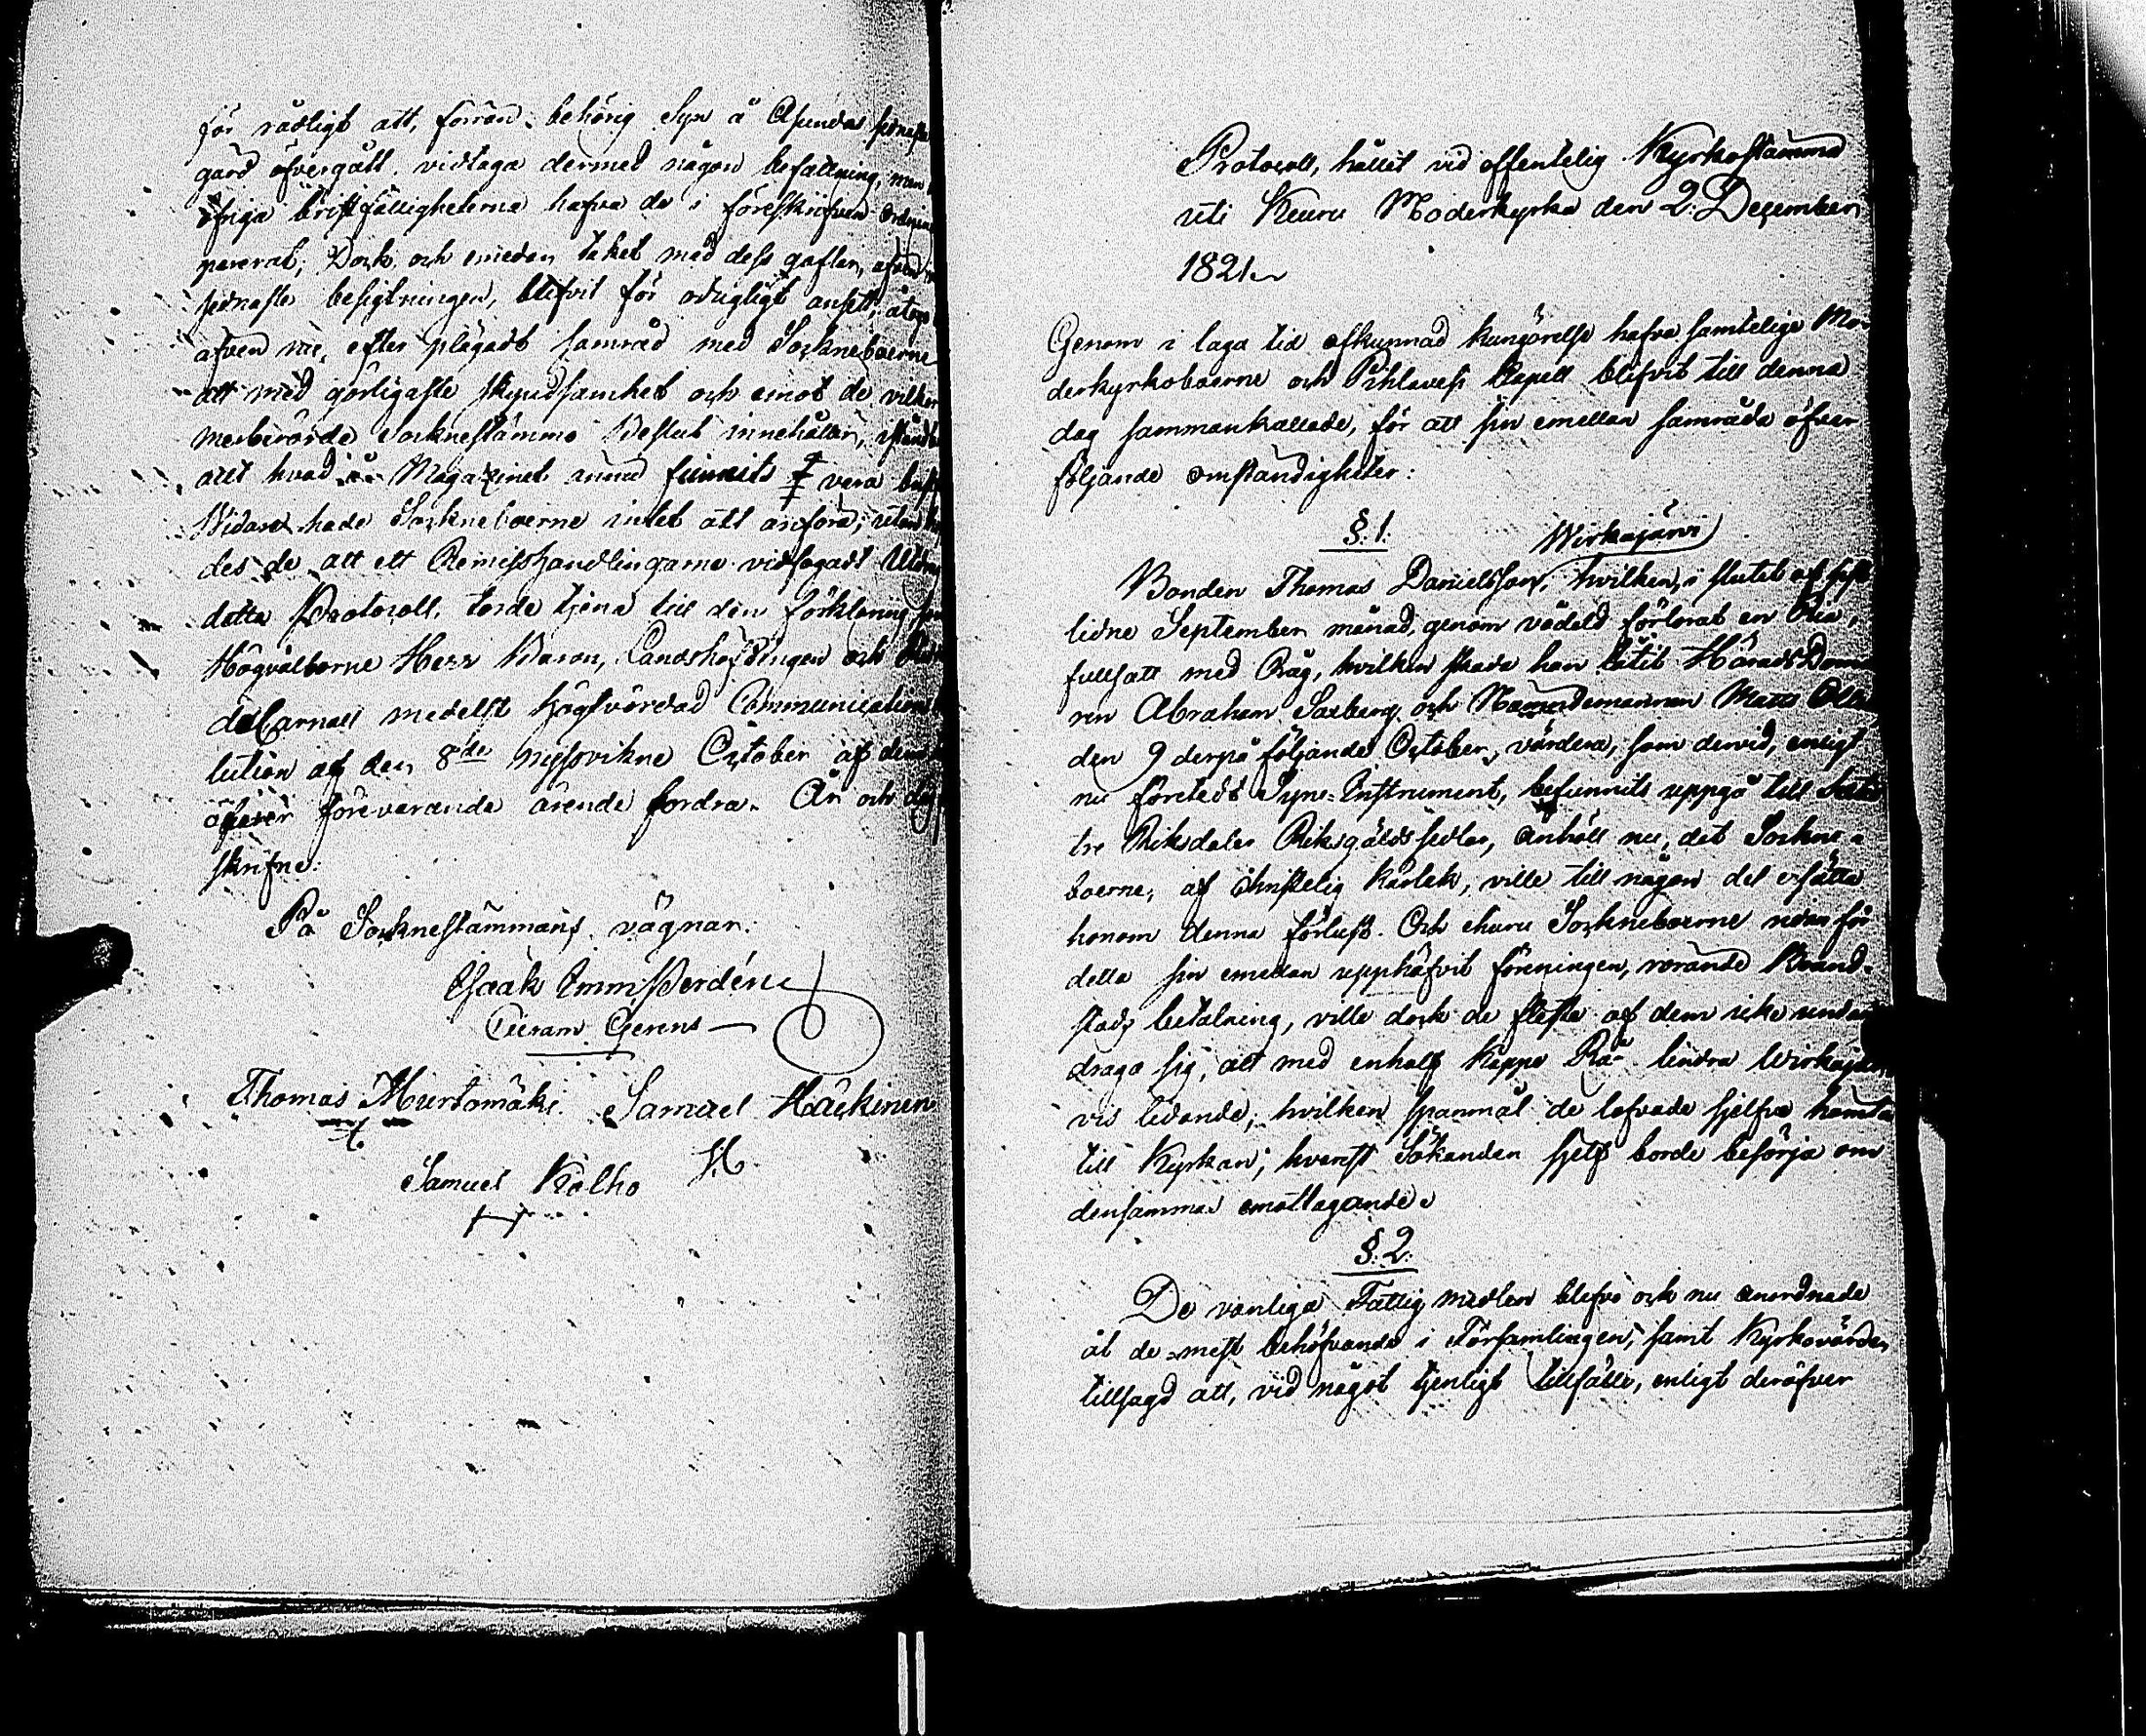 för rådligt att, förrän behörig Syn å
gård öfvergått, vidtaga dermed någon befattning, men
öfriga bristfälligheterna hafva de i föreskrifven
pererat; Dock och emedan taket med dess gaflar, äfven
sednaste besigtningen, blifvit för odugligt ansett,
äfven nu, efter plägadt samråd med Sockneboerne
att med görligaste skyndsamhet och emot de vilkor
merberörde Sockne stämmo Beslut innehåller,
allt hvad å Magazinet ännu funnits vara
Vidare hade Sockneboerne intet att anföra; utan
des de att ett Remisshandlingarne vidfogadt
detta Protocoll, torde tjena till den förklaring
Högvälborne Herr Baron, Landshöfdingen och
de Carnall medelst högtvördad Communications
lution af den 8de nyssvikne October af dem
öfver förevarande ärende fordra. År och dag
skrifne.
På Socknestämmans vägnar:
Isaak Imm Perdén
Thomas Murtomäki. Samuel Häckinen
Samuel Kalho
Protocoll, hållit vid offentelig Kyrkostämma
uti Keuru Moderkyrka den 2. December
1821.
Genom i laga tid afkunnad kungörelse hafva samtelige Mo-
derkyrkoboerne och Pihlavesi Capell blifvit till denna
dag sammankallade, för att sin emellan samråda öfver
följande omständigheter:
§. 1.
Wirkajärvi
Bonden Thomas Danielsson, hvilken, i slutet af sist
lidne September månad, genom vådeld förlorat en Ria,
fullsatt med Råg, hvilken skada han låtit Härads Dom
ren Abraham Saxberg och Nämndemannen Matts
den 9 derpå följande October, värdera, som dervid, enligt
nu företedt Syne-Instrument, befunnits uppgå till
tre Riksdaler Riksgälds sedlar, anhöll nu, det Sockne-
boerne, af christelig kärlek, ville till någon del ersätta
honom denna förlust. Och ehuru Sockneboerne redan för
detta sin emellan upphäfvit föreningen, rörande Brand-
stads betalning, ville dock de fleste af dem icke undan
draga sig, att med en half kappe Råg lindra Wirkajärvi
vis lidande; hvilken spanmål de lofvade sjelfve hämta
till Kyrkan; hvarest Sökanden sjelf borde besörja om
densammas emottagande.
§. 2.
De vanliga Fattig medlen blefvo ock nu anordnade
åt de mest behöfvande i Församlingen, samt Kyrkovärden
tillsagd att, vid något tjenligt tillfälle, enligt deröfver